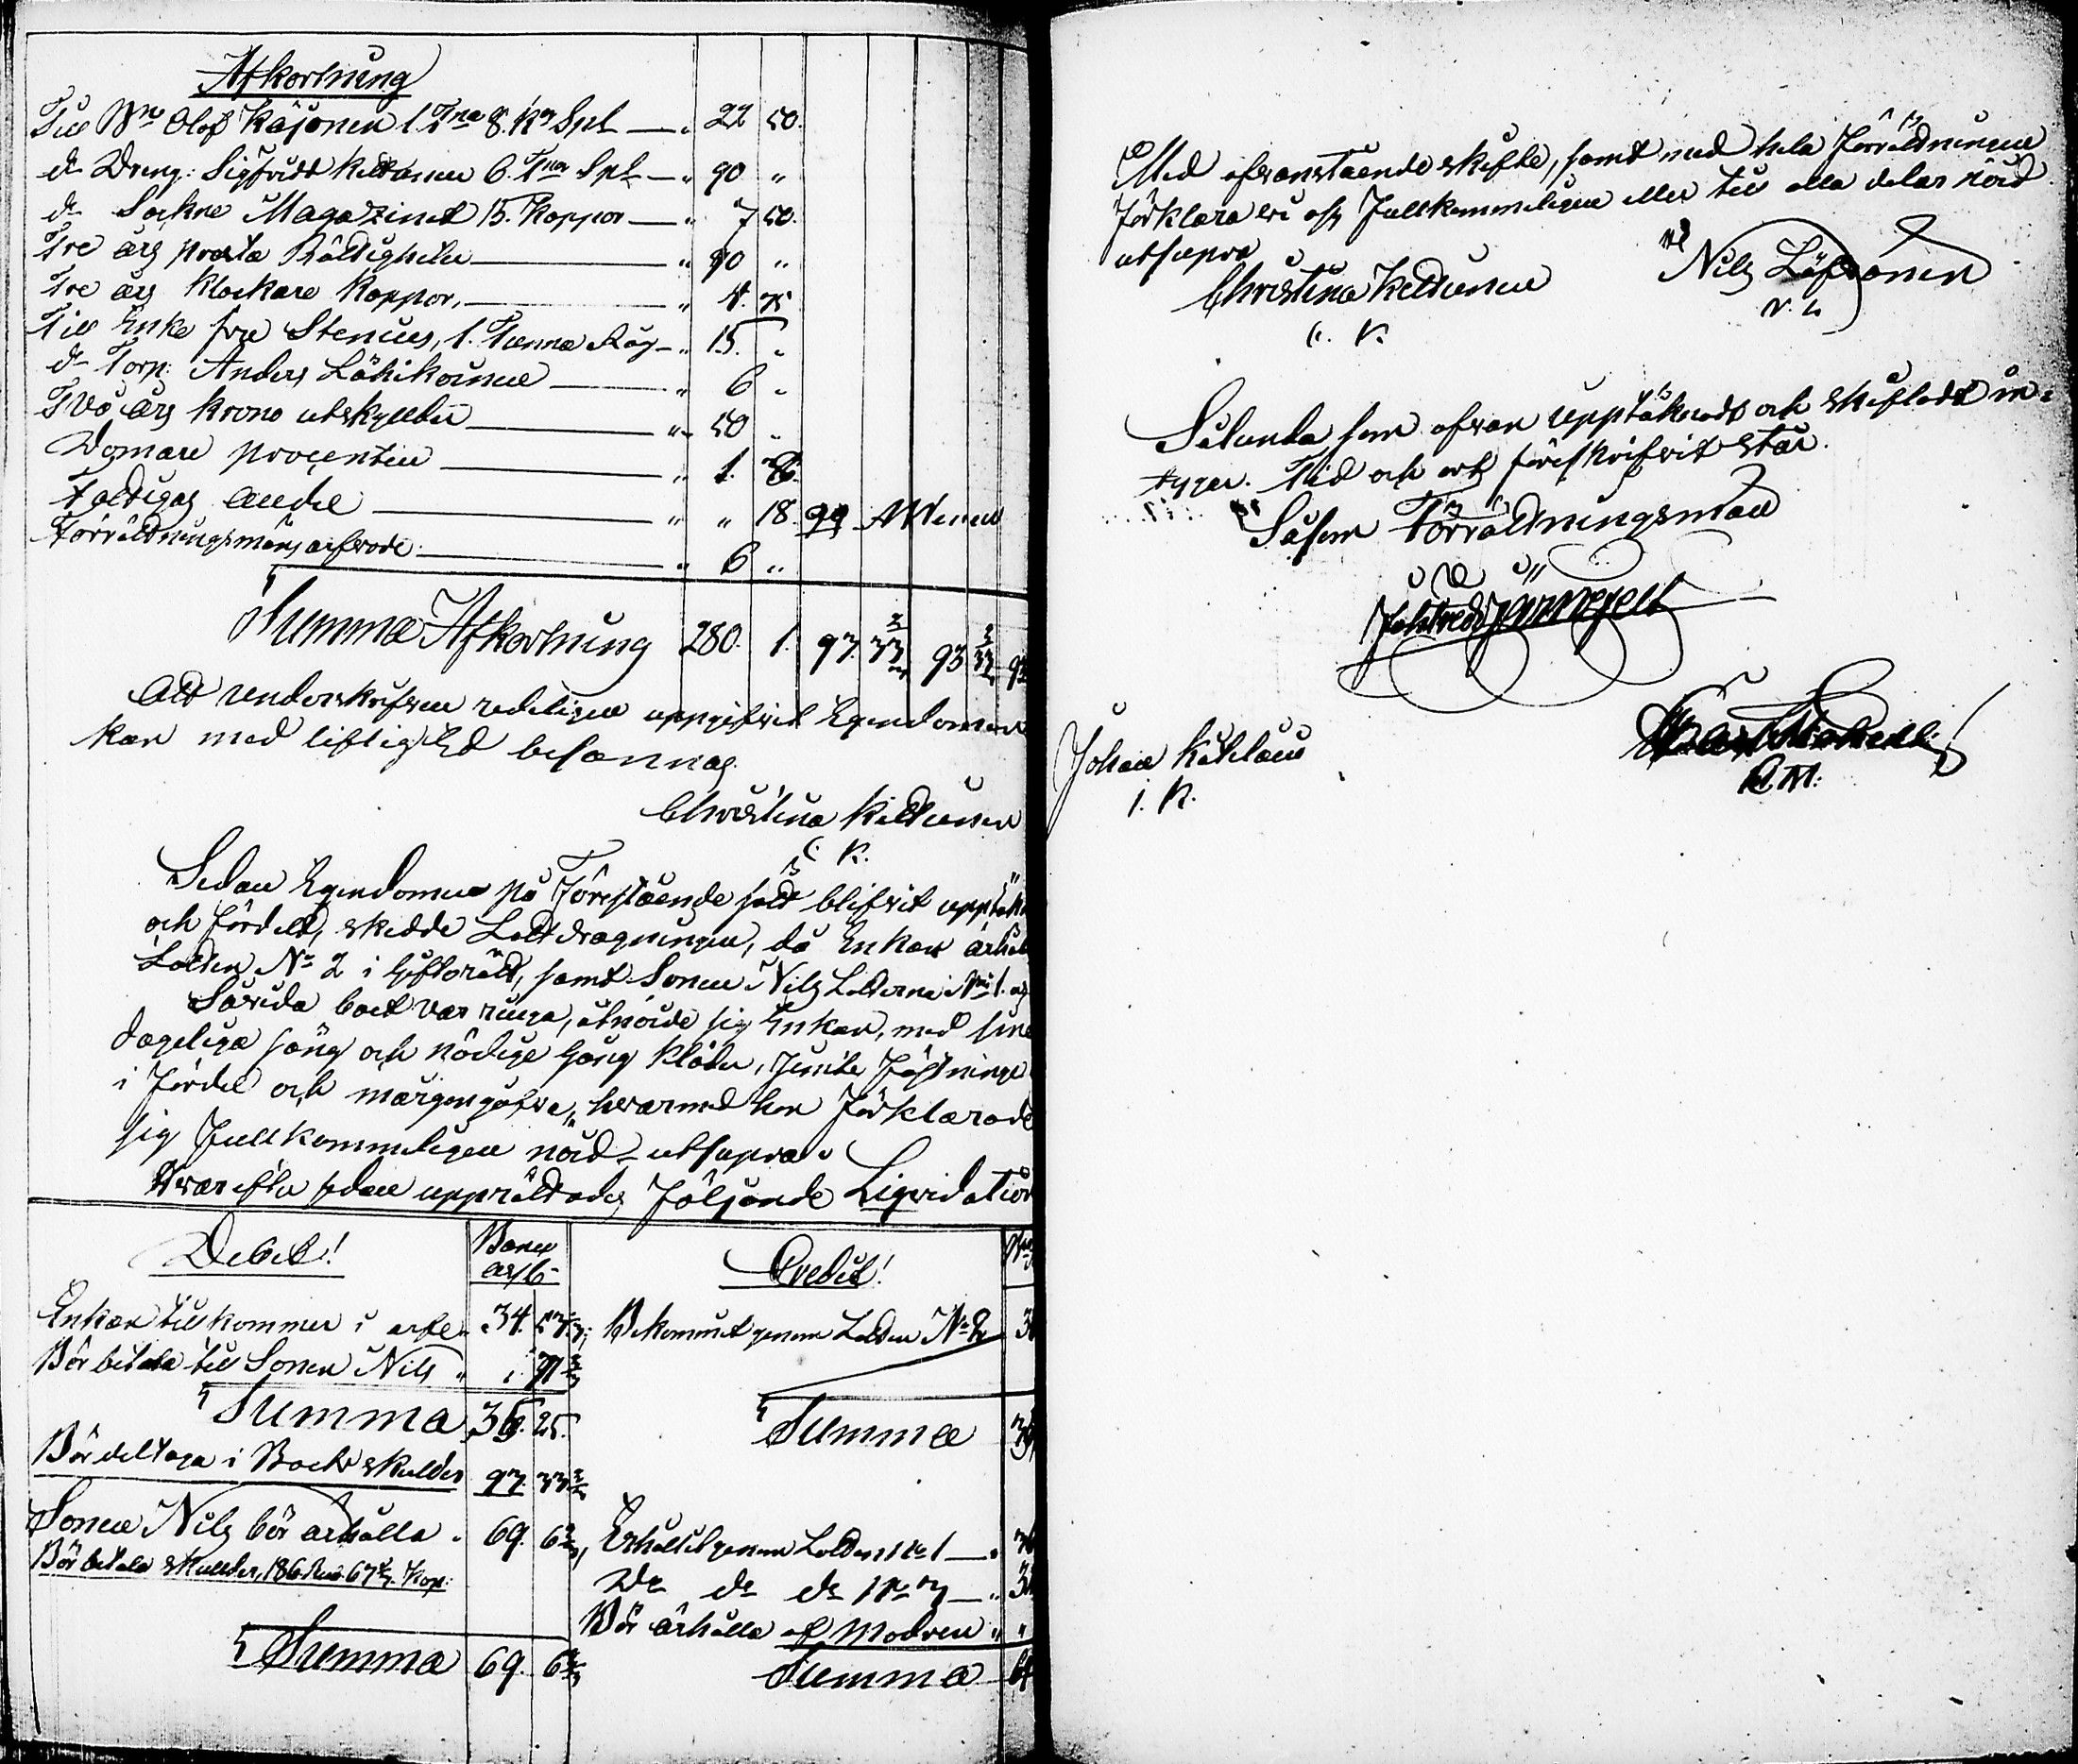 Afkortning
Till Bn Olof Käyönen 1 Tna 8. Kr Spl — " 22 50.
do Dreng: Sigfridt Keltanen 6. Tnor Spl — " 90 "
do Sockne Magazinet 15. Kappor — " 7 50.
Tre års Prosta Rättigheter — "  "
Tre års Klockare Kappor, — " 4. 75
Till Enke fru Stenius, 1. Tunna Råg — " 15. "
do Torp: Anders Lähikoinen — " 6 "
Två års Krono utskylder — " 50 "
Domare procenten — " 1.
Fattigas andel — " " 18
Förrättningsmäns arfvode: — " 6 "
Summa Afkortning 280. 1. 93. 33 93 33
Att underskrifven redeligen uppgifvit Egendomen
kan med liflig Ed besannas.
Christina Keltanen
C. K.
Sedan Egendomen på Förestående sätt blifvit upptäkn
och Fördeld, skedde Lottdragningen, då Enkan ärhöll
Lotten No 2 i Giftorätt, samt Sonen Nils Lotterne No 1. o
Särida boet var ringa, åtnöide sig Enkan, med sine
dageliga säng och nödige gång kläder, jemte Fästninge
i Fördel och morgongåfva, hvarmed hon Förklarade
sig Fullkommeligen nöid utsupra.
Hvarefter sedan upprättades Följande Liqvidation
Debet! Banco ass Credit!
Enkan tillkommer i arfve " 34. 53 Bekommit genom Lotten No 2
Bör betala till Sonen Nils " 1. 71
Summa 36. 25. Summa
Bör deltaga i Boets skulder 93. 33
Sonen Nils bör ärhålla " 69. 6 Erhållit genom Lotten No 1 — "
Bör betala skulder, 186 Rub 67 Kop:
Do do do No 3 — "
Bör ärhålla af Modren " "
Summa 69. 6 Summa
Med ofvanstående skifte, samt med hela Förrättningen
Förklara vi oss Fullkommeligen eller till alla delar nöid
utsupra
Christina Keltanen
C. K.
Nils
N. L
Sålunda som ofvan upptäknadt och skiftadt in-
tygar. Tid och ort föreskrifvit står.
Såsom Förrättningsman
Johan
J. K.